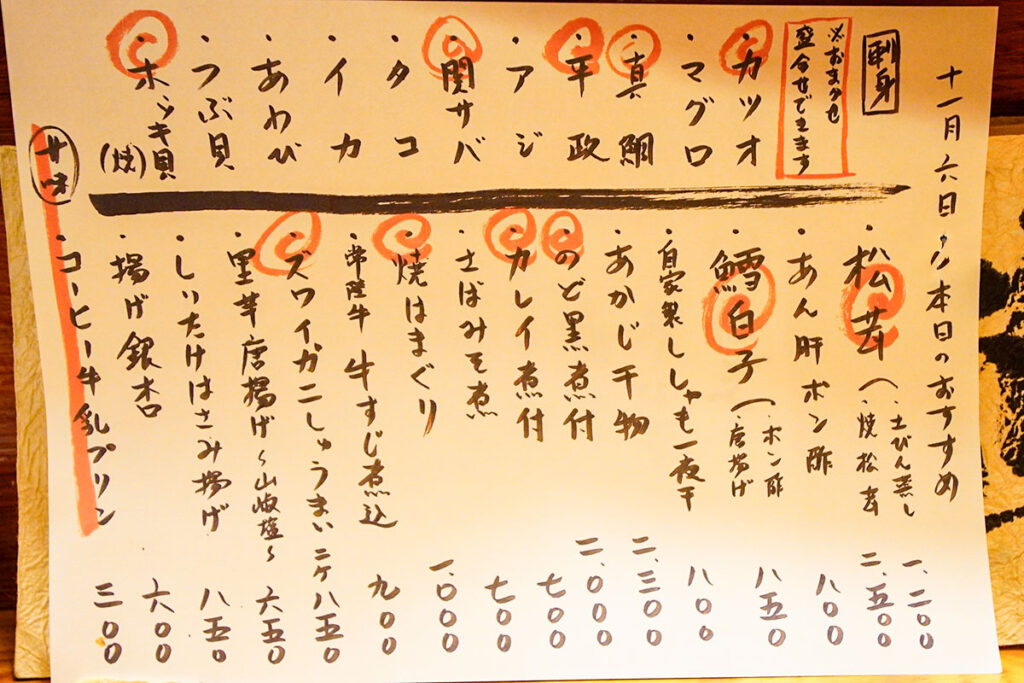 十一月六日 本日のおすすめ
刺身
※おまかせ
盛合せできます
・カツオ
・マグロ
・真鯛
・平政
・アジ
・関サバ
・タコ
・イカ
・あわび
・つぶ貝
・ホッキ貝
(焼)
・松茸
・土びん蒸し 一、二〇〇
・焼松茸 二、五〇〇
・あん肝ポン酢 八〇〇
・鱈白子
・ポン酢
・唐揚げ 八五〇
・自家製ししゃも一夜干 八〇〇
・あかじ干物 二、三〇〇
・のど黒煮付 二、〇〇〇
・カレイ煮付 七〇〇
・さばみそ煮 七〇〇
・焼はまぐり 一、〇〇〇
・常陸牛 牛すじ煮込 九〇〇
・ズワイガニしゅうまい 二ケ 八五〇
・里芋唐揚げ〜山椒塩〜 六五〇
・しいたけはさみ揚げ 八五〇
・揚げ銀杏 六〇〇
甘味
・コーヒー牛乳プリン 三〇〇